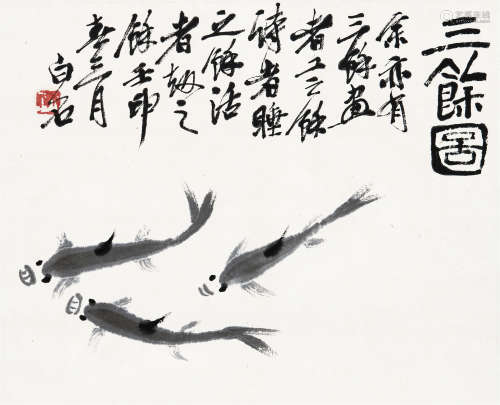 三餘圖
余亦有
三餘畫
者工之餘
詩者睡
之餘活
者劫之
餘壬申
春三月
白石